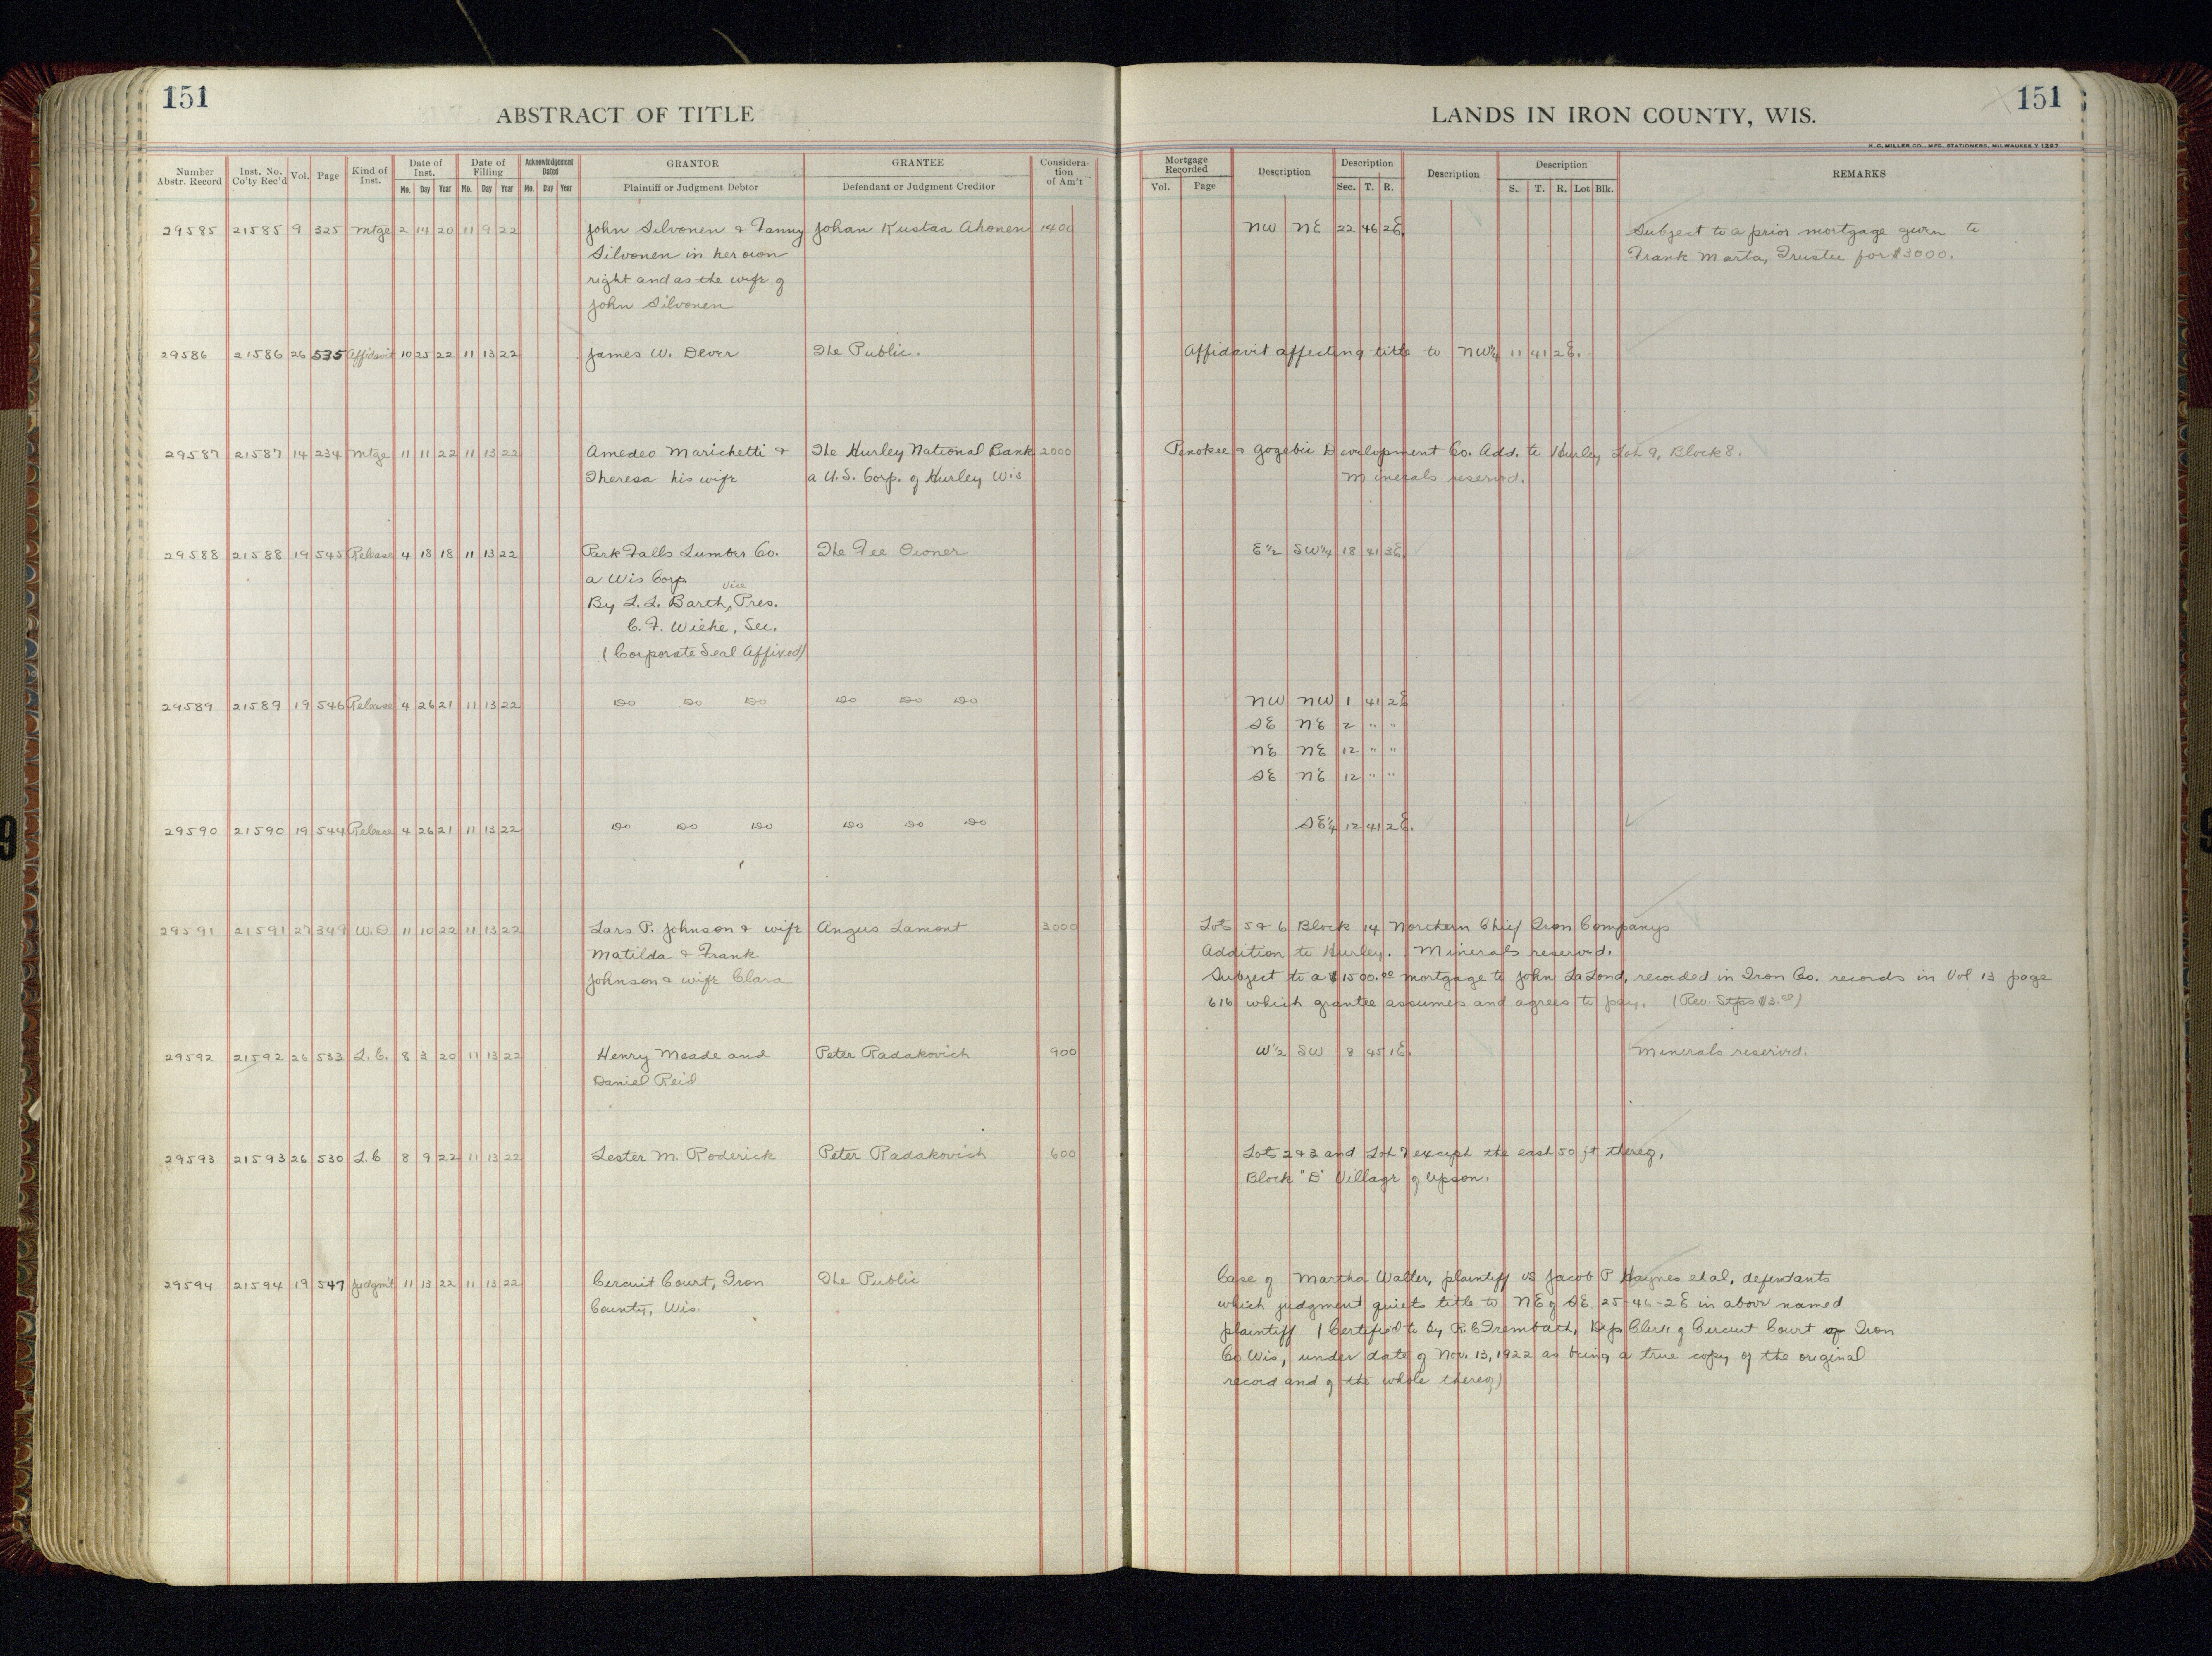 151
ABSTRACT OF TITLE
LANDS IN IRON COUNTY, WIS.
151
H. C. MILLER CO., MFG. STATIONERS, MILWAUKEE
Number Abstr. Record | Inst. No. Co'ty Rec'd | Vol. | Page | Kind of Inst. | Date of Inst. Mo. Day Year | Date of Filing Mo. Day Year | Acknowledgement Dated Mo. Day Year | GRANTOR Plaintiff or Judgment Debtor | GRANTEE Defendant or Judgment Creditor | Considera-tion of Am't | Mortgage Recorded Vol. Page | Description | Description Sec. T. R. | Description | Description S. T. R. Lot Blk. | REMARKS
29585 21585 9 325 Mtge 2 14 20 11 9 22 John Silvonen & Fanny Johan Kustaa Ahonen 1400 NW NE 22 46 2E. Subject to a prior mortgage given to
Silvonen in her own Frank Marta, Trustee for $3000.
right and as the wife of
John Silvonen
29586 21586 26 535 Affidavit 10 25 22 11 13 22 James W. Dever The Public. Affidavit affecting title to NW¼ 11 41 2E.
29587 21587 14 234 Mtge 11 11 22 11 13 22 Amedeo Marichetti & The Hurley National Bank 2000 Penokee & Gogebic Development Co. Add. to Hurley, Lot 9, Block 8.
Theresa his wife a U.S. Corp. of Hurley Wis Minerals reserved.
29588 21588 19 545 Release 4 18 18 11 13 22 Park Falls Lumber Co. The Fee Owner E½ SW¼ 18 41 3E
a Wis Corp
By L. L. Barth, Vice Pres.
C. F. Wiehe, Sec.
(Corporate Seal Affixed)
29589 21589 19 546 Release 4 26 21 11 13 22 Do Do Do Do Do Do NW NW 1 41 2E
SE NE 2 " "
NE NE 12 " "
SE NE 12 " "
29590 21590 19 544 Release 4 26 21 11 13 22 Do Do Do Do Do Do SE¼ 12 41 2E.
29591 21591 27 349 W.D 11 10 22 11 13 22 Lars P. Johnson & wife Angus Lamont 3000 Lots 5 & 6 Block 14 Northern Chief Iron Companys
Matilda & Frank Addition to Hurley. Minerals reserved.
Johnson & wife Clara Subject to a $1500.00 mortgage to John LaLond, recorded in Iron Co. records in Vol 13 page
616 which grantee assumes and agrees to pay. (Rev. Stps $3.00)
29592 21592 26 533 L.C. 8 3 20 11 13 22 Henry Meade and Peter Radakovich 900 W½ SW 8 45 1E. Minerals reserved.
Daniel Reid
29593 21593 26 530 L.C 8 9 22 11 13 22 Lester M. Roderick Peter Radakovich 600 Lots 2 & 3 and Lot 7 except the east 50 ft thereof,
Block "D" Village of Upson.
29594 21594 19 547 Judgm't 11 13 22 11 13 22 Circuit Court, Iron The Public Case of Martha Walter, plaintiff vs Jacob P Haynes et al, defendants
County, Wis. which judgment quiets title to NE of SE. 25-46-2E in above named
plaintiff (Certified to by R. C Trembath, Dep Clerk of Circuit Court of Iron
Co Wis, under date of Nov. 13, 1922 as being a true copy of the original
record and of the whole thereof)